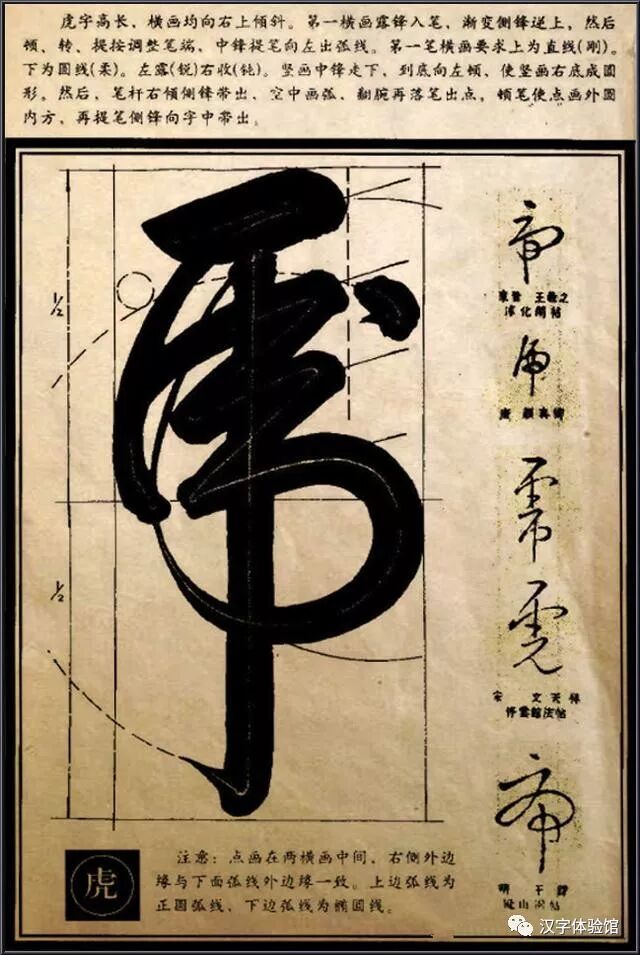 虎字高长、横画均向右上倾斜。第一横画露锋入笔、渐变侧锋逆上，然后
顿、转、提按调整笔端、中锋提笔向左出弧线。第一笔横画要求上为直线(刚)。
下为圆线(柔)。左露(锐)右收(钝)。竖画中锋走下、到底向左顿、使竖画右底成圆
形。然后、笔杆右倾侧锋带出、空中画弧、翻腕再落笔出点，顿笔使点画外圆
内方、再提笔侧锋向字中带出。
1/2
1/2
虎
東晉 王羲之
淳化閣帖
唐 顏真卿
宋 文天祥
停雲館法帖
明
注意：点画在两横画中间、右侧外边
缘与下面弧线外边缘一致。上边弧线为
正圆弧线、下边弧线为椭圆线。
虎
汉字体验馆